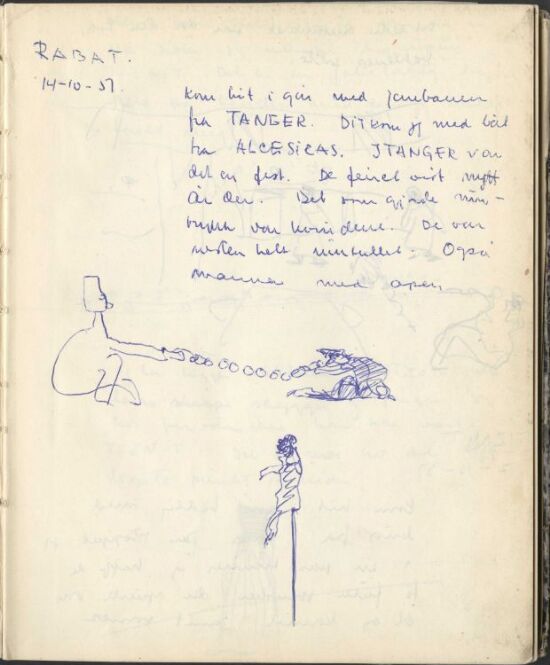 RABAT.
14-10-51.
Kom hit i går med jernbanen
fra TANGER. Dit kom jeg med båt
fra ALCESICAS. I TANGER var
det en fest. De feiret visst nytt
år der. Det som gjorde inn-
trykk var kvindene. De var
nesten helt innhullet. Også
mannen med apen